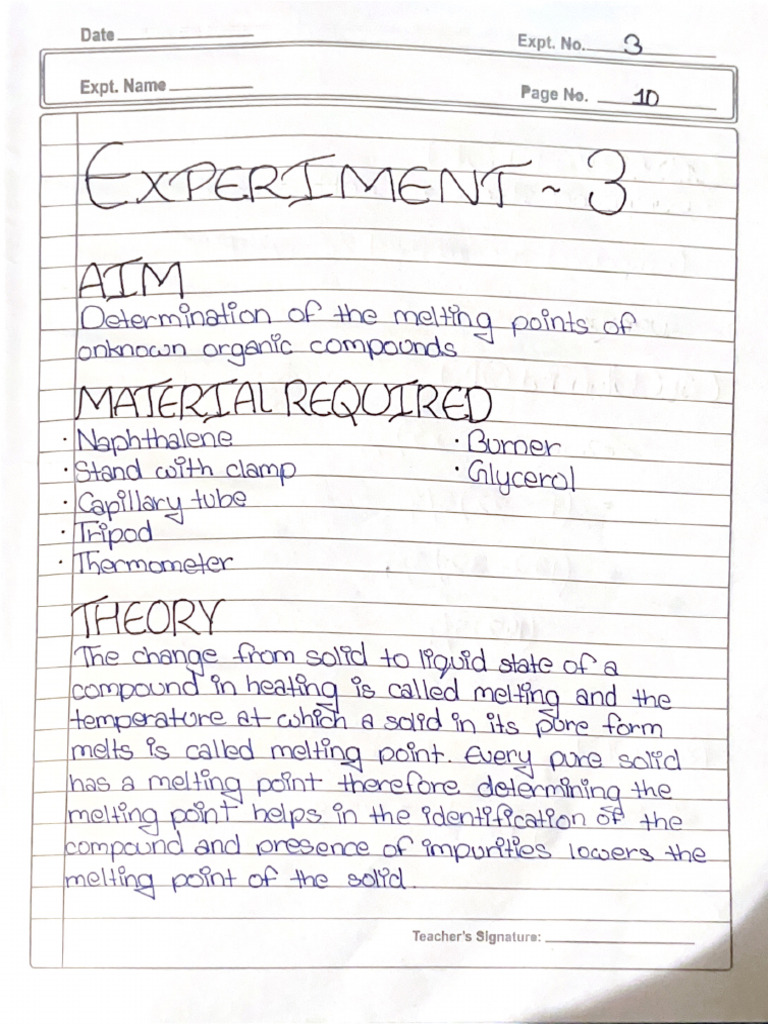 Date
Expt. No. 3
Expt. Name
Page No. 10
EXPERIMENT ~ 3
AIM
Determination of the melting points of
unknown organic compounds
MATERIAL REQUIRED
· Naphthalene
· Burner
· Stand with clamp
· Glycerol
· Capillary tube
· Tripod
· Thermometer
THEORY
The change from solid to liquid state of a
compound in heating is called melting and the
temperature at which a solid in its pure form
melts is called melting point. Every pure solid
has a melting point therefore determining the
melting point helps in the identification of the
compound and presence of impurities lowers the
melting point of the solid.
Teacher's Signature: